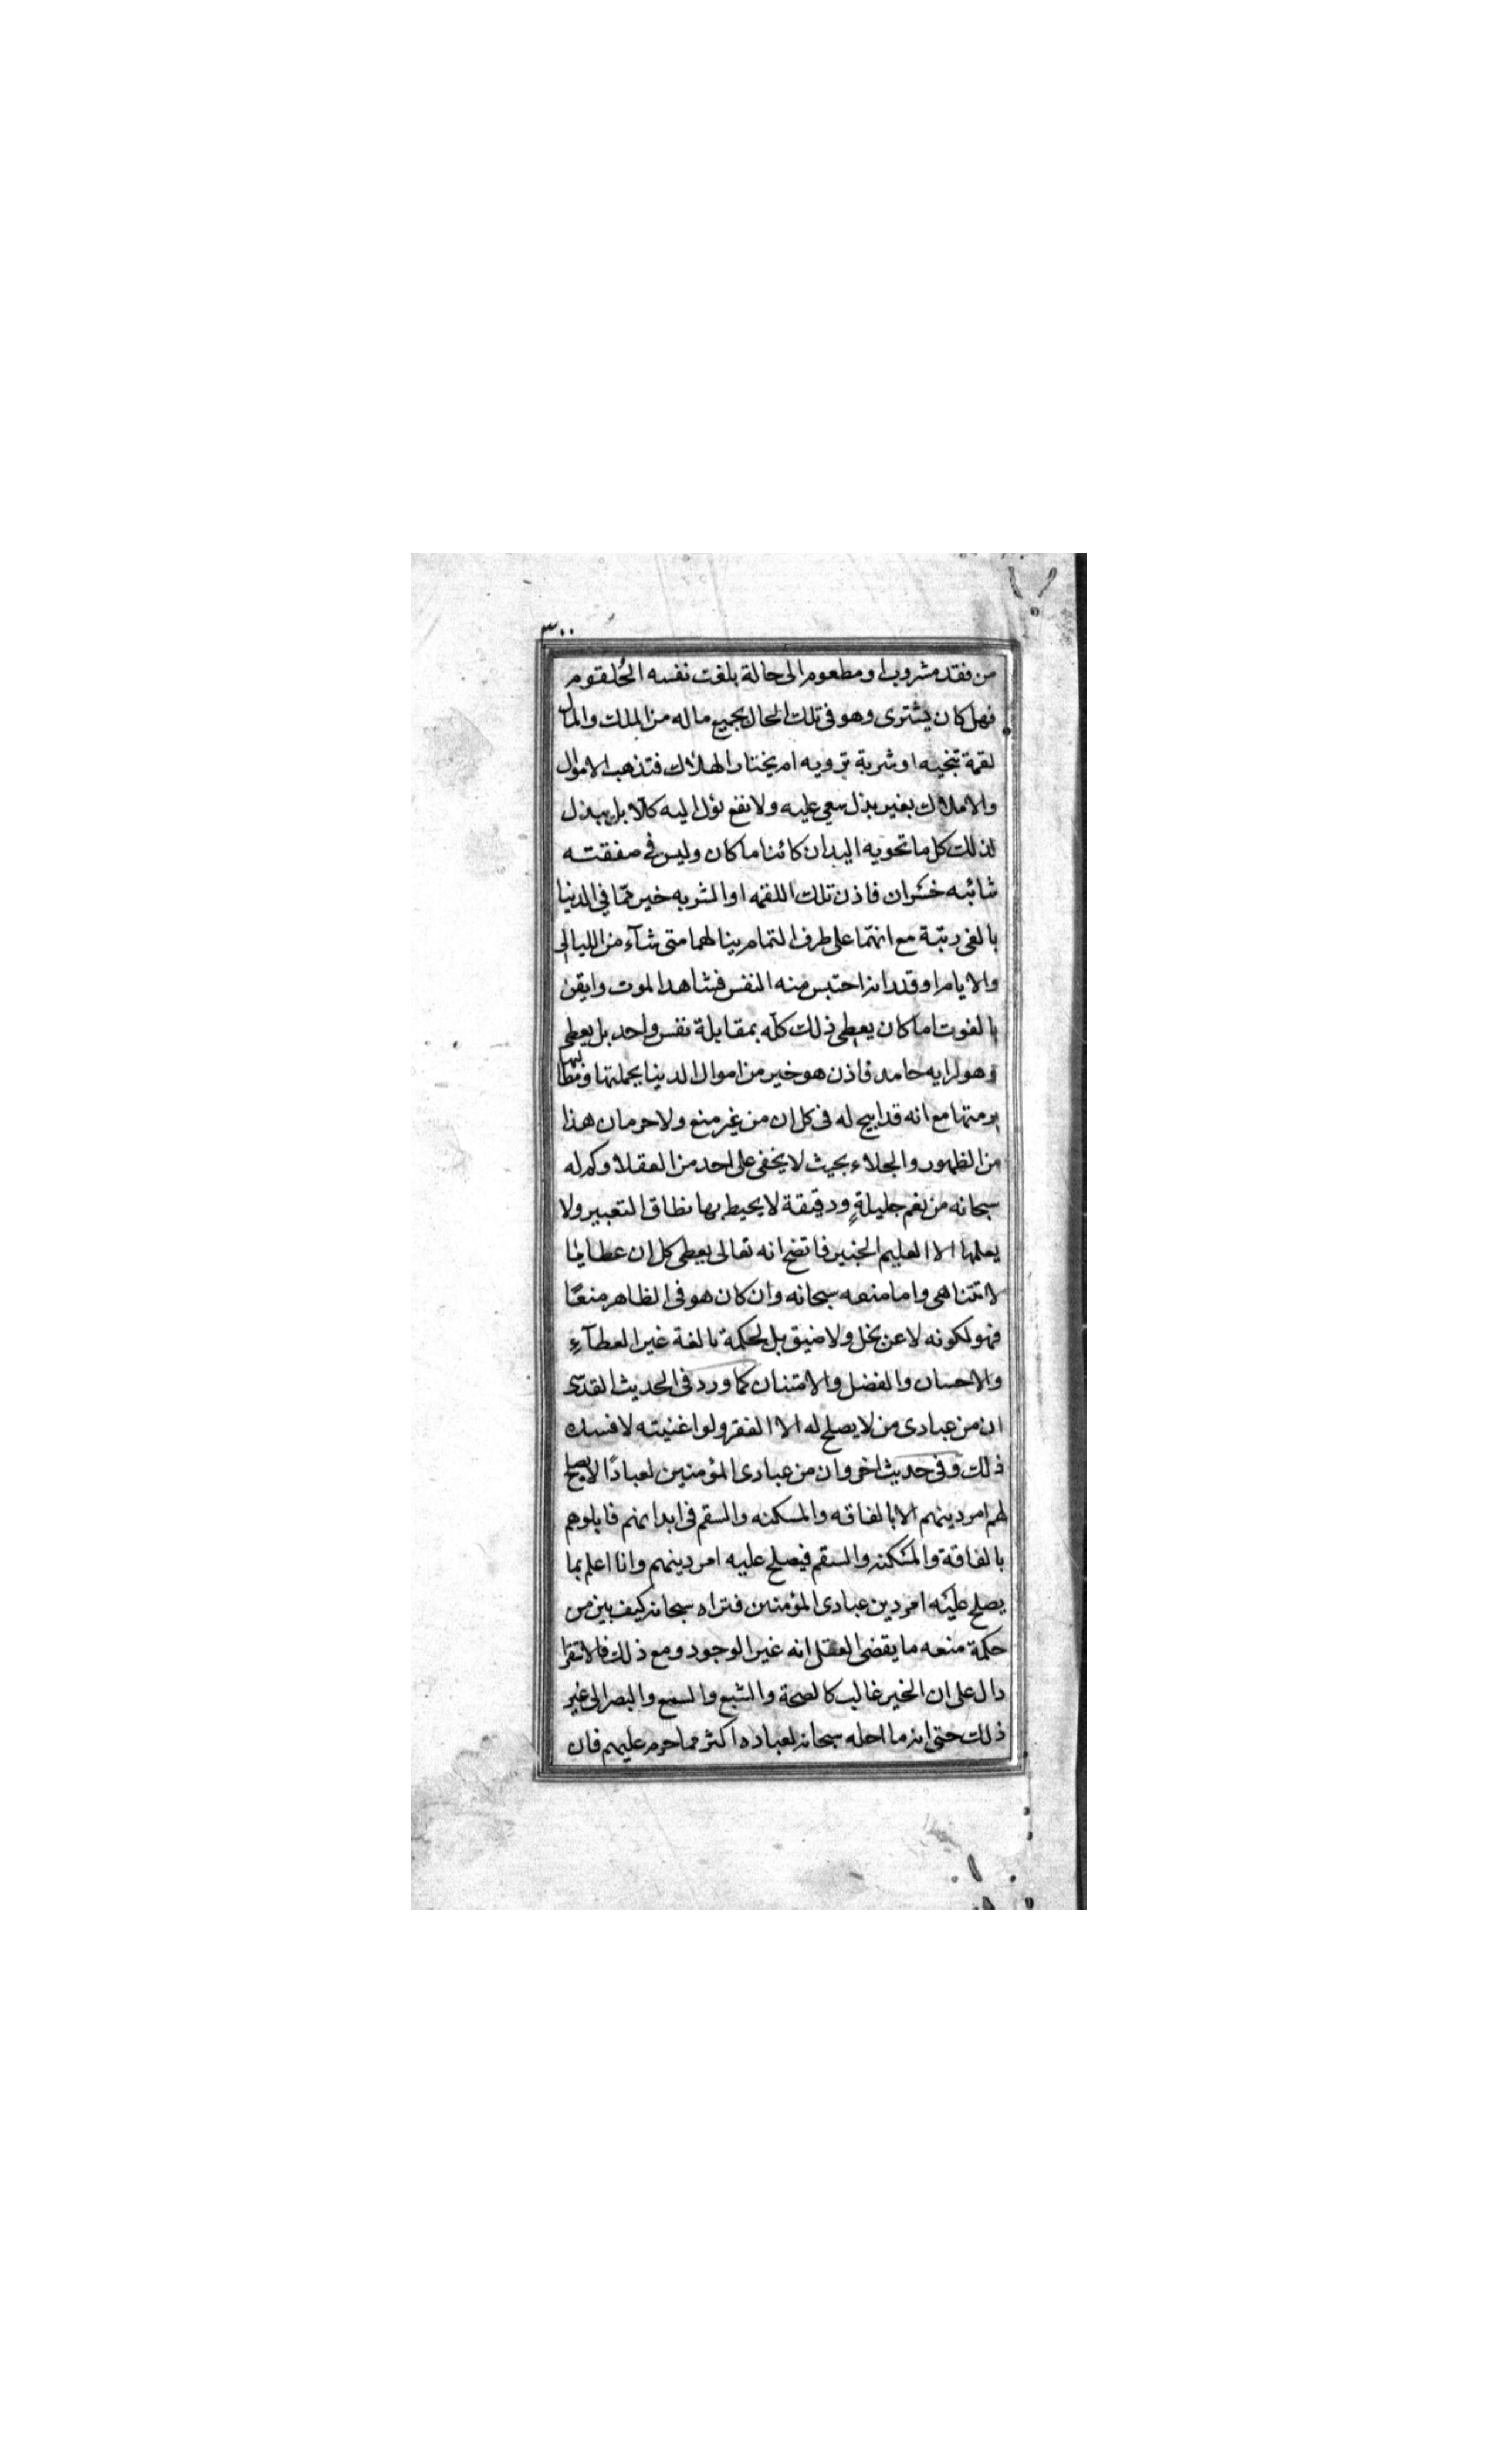 ٣٠٠
من فقد مشروبا او مطعوم الى حالة بلغت نفسه الحلقوم
فهل كان يشترى وهو فى تلك الحال بجميع ماله من الملك والمال
لقمة تنجيه او شربة ترويه ام يختار الهلاك فتذهب الاموال
والاملاك بغير بذل سعى عليه ولا نفع يؤل اليه كلا بل يبذل
لذلك كل ما تحويه اليدان كائنا ما كان وليس فى صفقته
شائبه خسران فاذن تلك اللقمه او الشربه خير ممّا فى الدنيا
بالف رتبة مع انهما على طرف التمام ينالهما متى شآء من الليالى
والايام او قدر انه احتبس منه النفس فشاهد الموت وايقن
بالفوت اما كان يعطى ذلك كله بمقابلة نفس واحد بل يعطى
وهو لرايه حامد فاذن هو خير من اموال الدنيا بجملتها ومطالبها
برمتها مع انه قد ابيح له فى كل ان من غير منع ولا حرمان هذا
من الظهور والجلاء بحيث لا يخفى على احد من العقلا وكم له
سبحانه من نعم جليلةٍ ودقيقة لا يحيط بها نطاق التعبير ولا
يعلمها الا العليم الخبير فاتضح انه تعالى يعطى كل ان عطايا
لا تتناهى واما منعه سبحانه وان كان هو فى الظاهر منعًا
فهو لكونه لا عن بخل ولا ضيق بل لحكمة بالغة غير العطآءِ
والاحسان والفضل والامتنان كما ورد فى الحديث القدسى
ان من عبادى من لا يصلح له الا الفقر ولو اغنيته لافسده
ذلك وفى حديث اخر وان من عبادى المؤمنين لعبادًا لا يصلح
لهم امر دينهم الا بالفاقه والمسكنه والسقم فى ابدانهم فابلوهم
بالفاقة والمسكنه والسقم فيصلح عليه امر دينهم وانا اعلم بما
يصلح عليه امر دين عبادى المؤمنين فتراه سبحانه كيف بين من
حكمة منعه ما يقضى العقل انه غير الوجود ومع ذلك فالاستقرا
دال على ان الخير غالب كالصحة والشبع والسمع والبصر الى غير
ذلك حتى انه ما احله سبحانه لعباده اكثر مما حرم عليهم فان